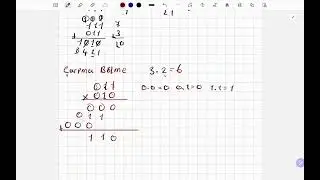 000
111 7
+ 011 3
1010 10
8421
Çarpma Bölme 3.2=6
011 0.0=0 0.1=0 1.1=1
x 010
000
011
+ 000
110